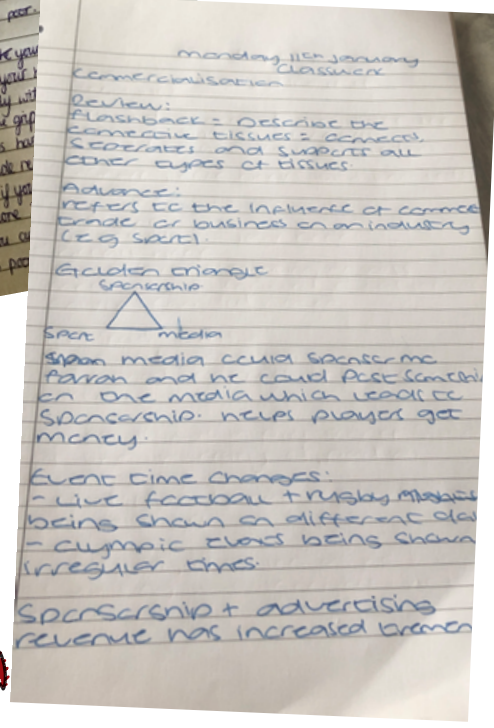 monday 11th january
classwork
commercialisation
Review:
flashback = Describe the
connective tissues = connects,
seperates and supports all
other types of tissues.
Advance:
refers to the influence of commerce
trade or business on an industry
(e.g sport).
Golden triangle
sponsorship
sport media
media could sponsor mo
farrah and he could post somethi
on the media which leads to
sponsorship. helps players get
money.
Event time changes:
- Live football + rugby
being shown on different da
- olympic events being shown
irregular times.
Sponsorship + advertising
revenue has increased tremen